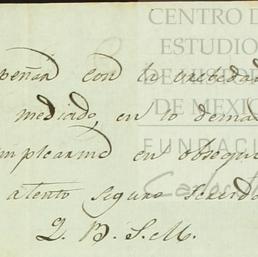 CENTRO D
ESTUDIO
DE HISTOR
DE MEXIC
FUNDACI
Carlos
peñar con la
mediado, en lo dema
mplearme en obsequi
atento seguro Servido
Q. B. S. M.